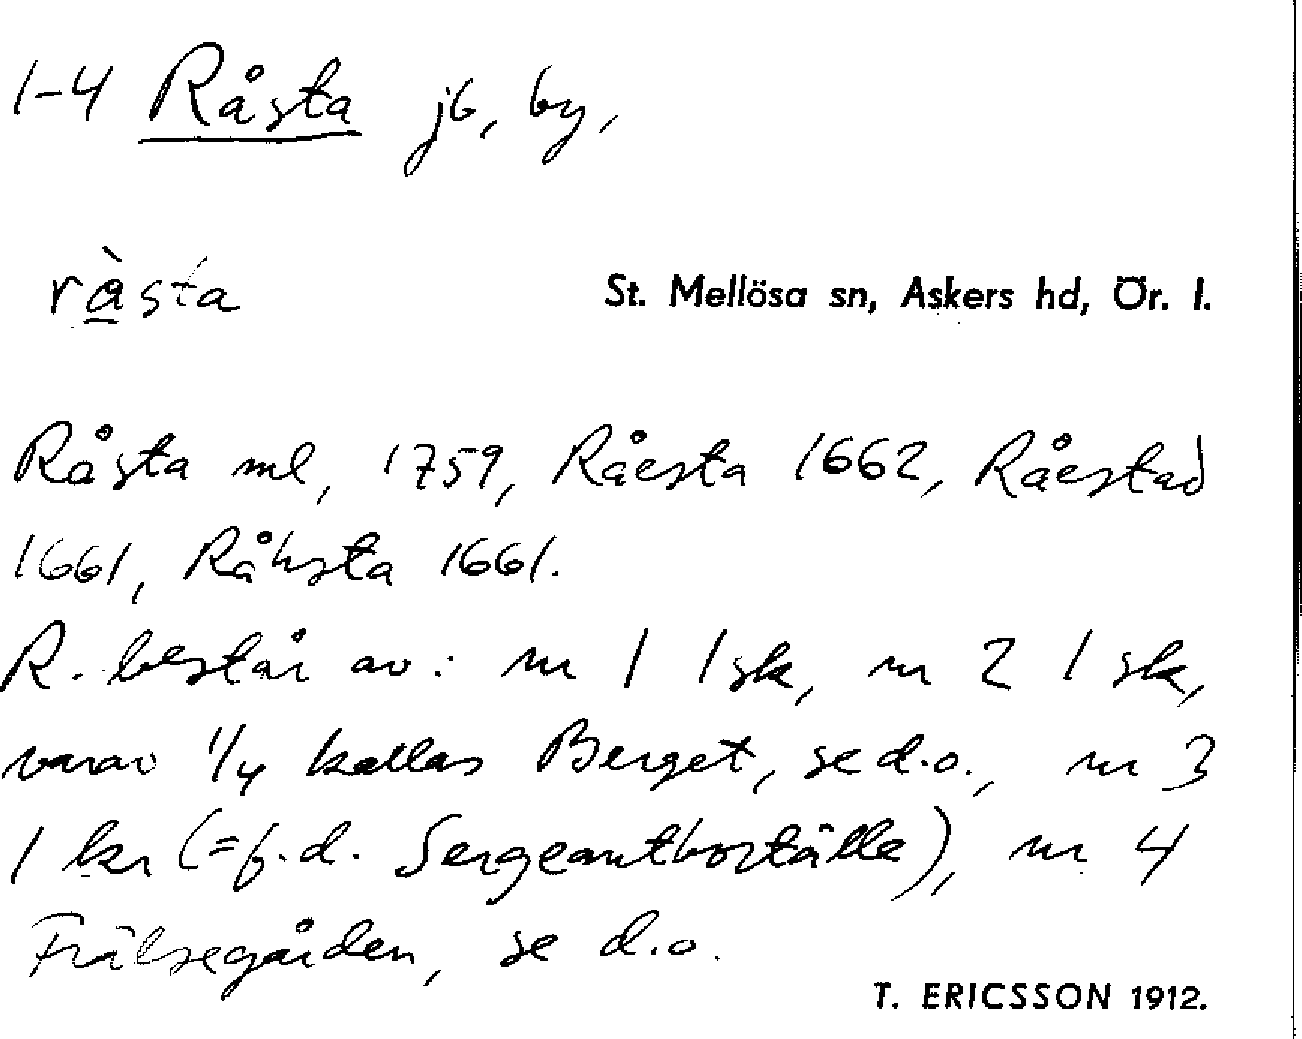 1-4 Råsta jb, by,
ràsta
St. Mellösa sn, Askers hd, Ör. l.
Råsta ml, 1759, Råesta 1662, Råestad
1661, Råhsta 1661.
R. består av: nr 1 1 sk, nr 2 1 sk,
varav 1/4 kallas Berget, se d.o., nr 3
1 kr (=f.d. Sergeantboställe), nr 4
Frälsegården, se d.o.
T. ERICSSON 1912.